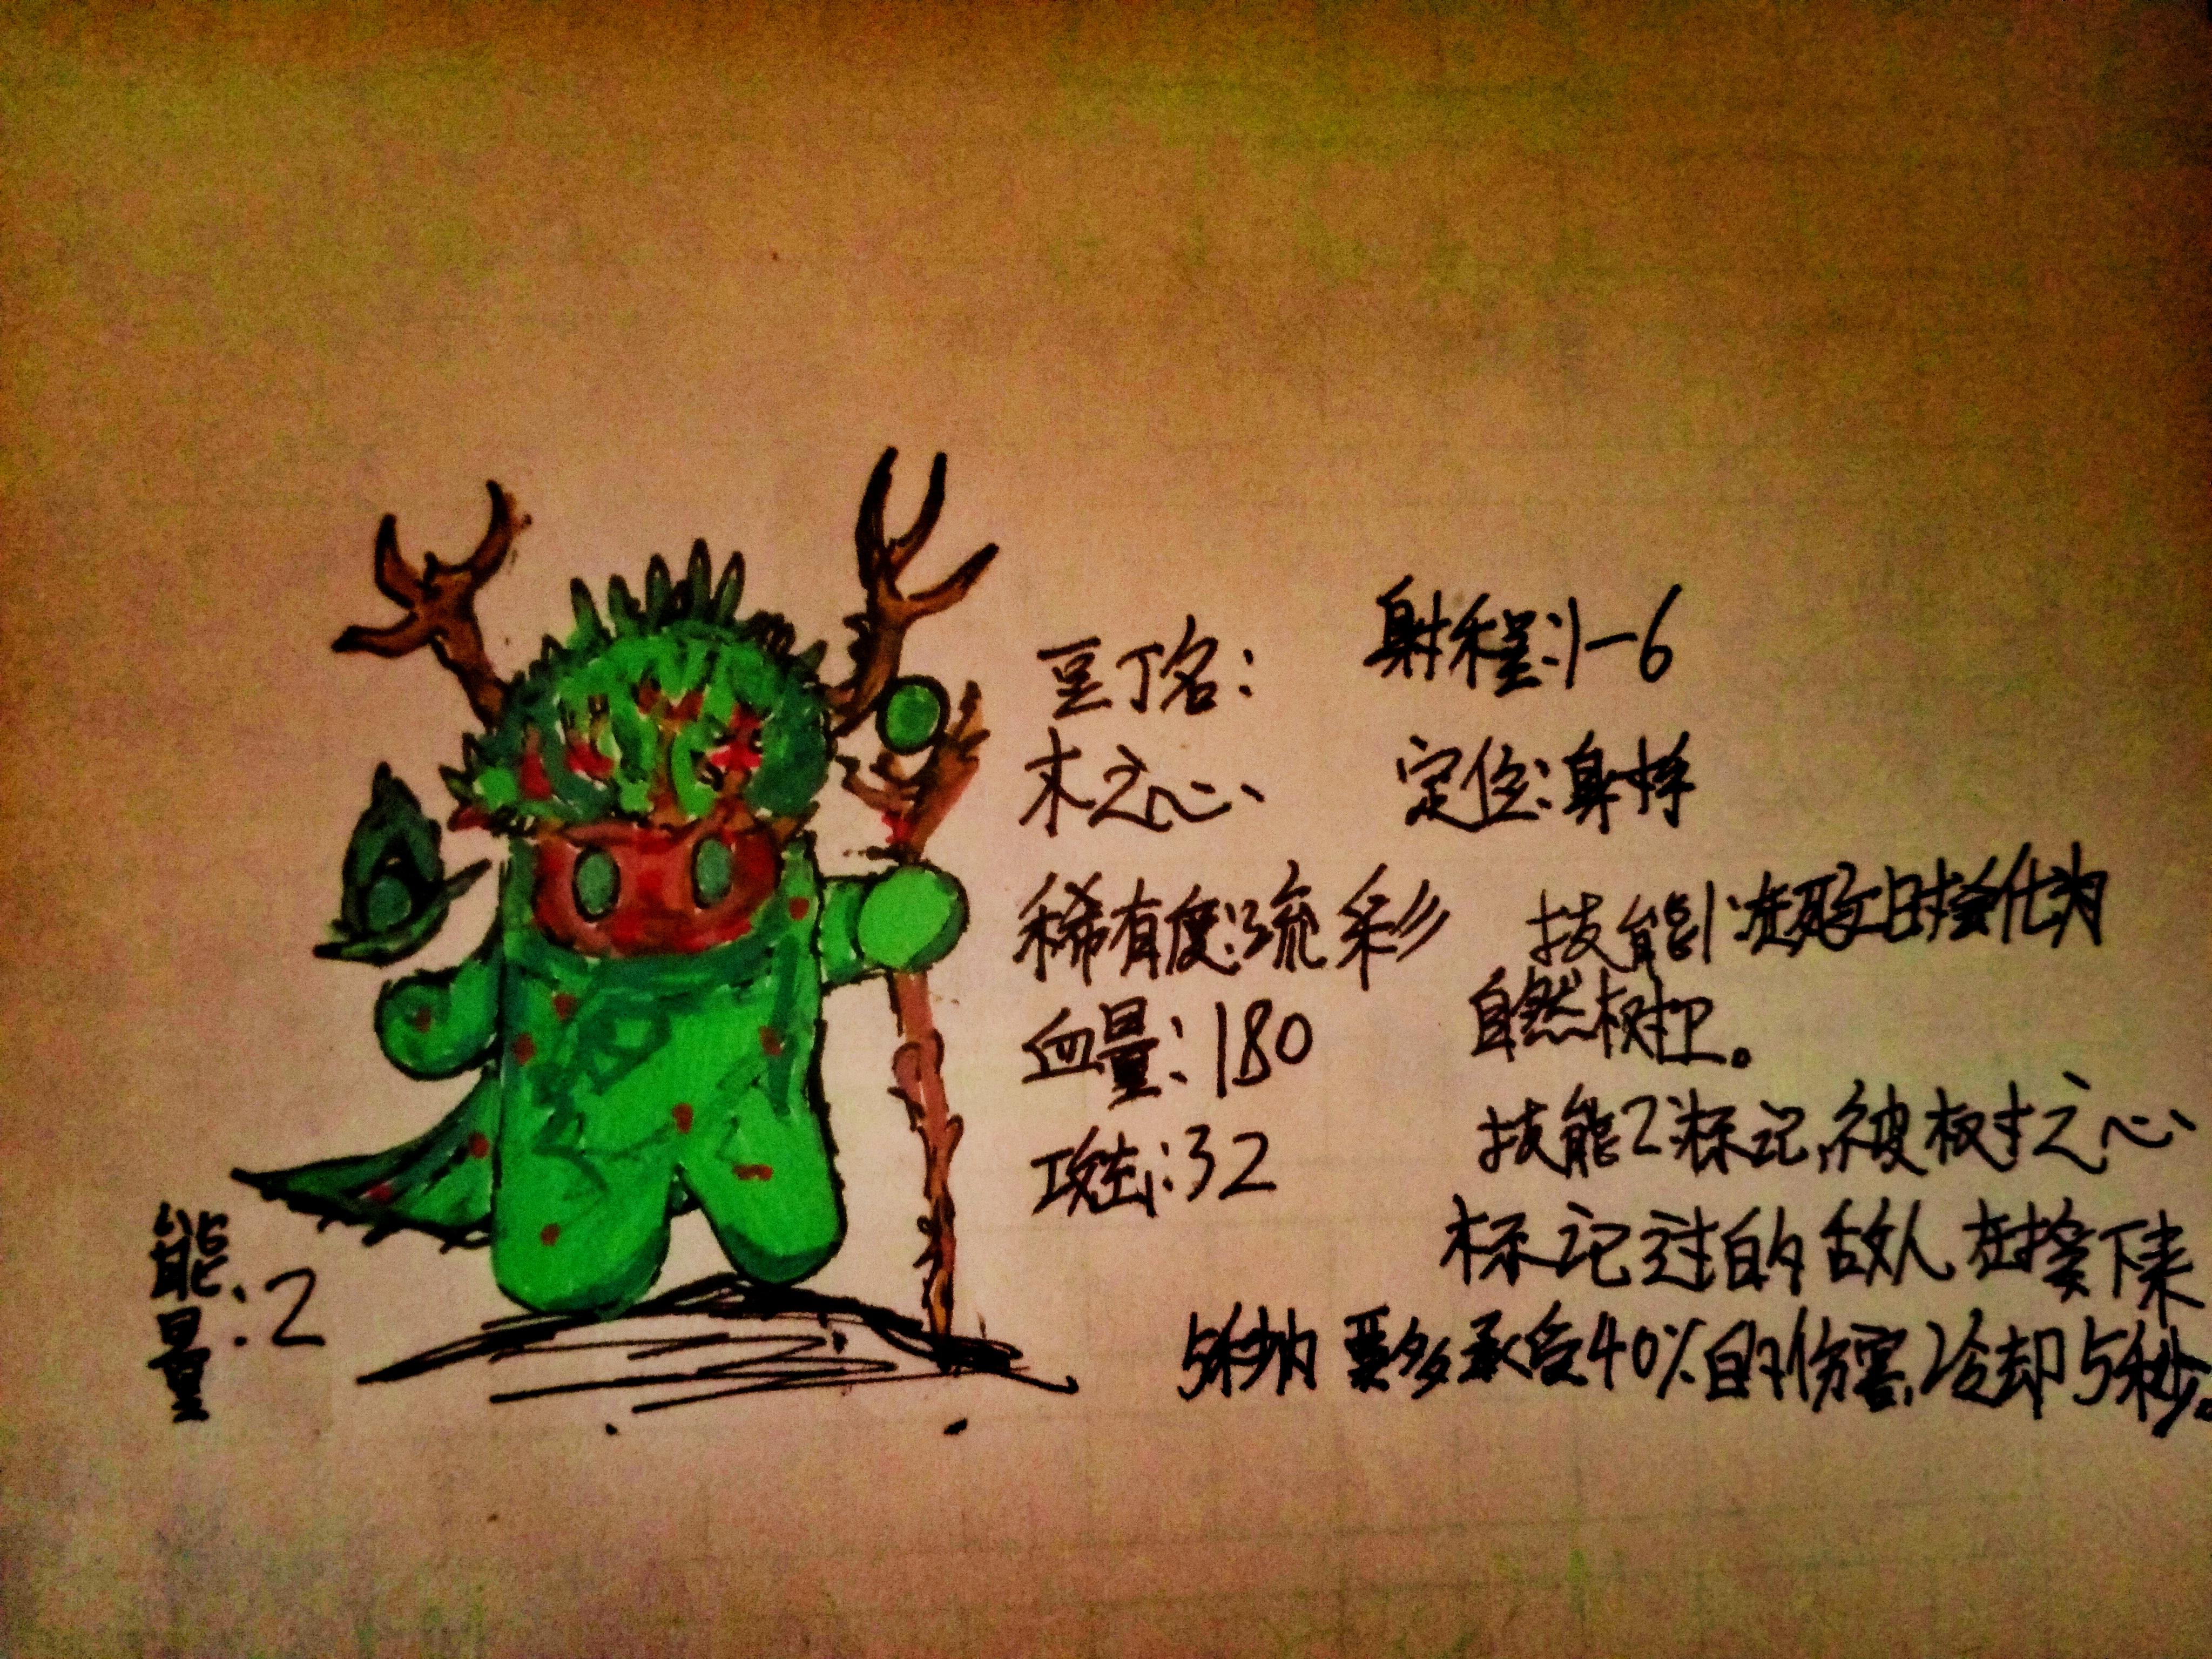 豆丁名：
木之心
稀有度：流彩
血量：180
攻击：32
能量：2
射程：1-6
定位：射手
技能1：在死亡时会化为
自然树卫。
技能2：标记，被树之心
标记过的敌人在接下来
5秒内要多承受40%的伤害，冷却5秒。